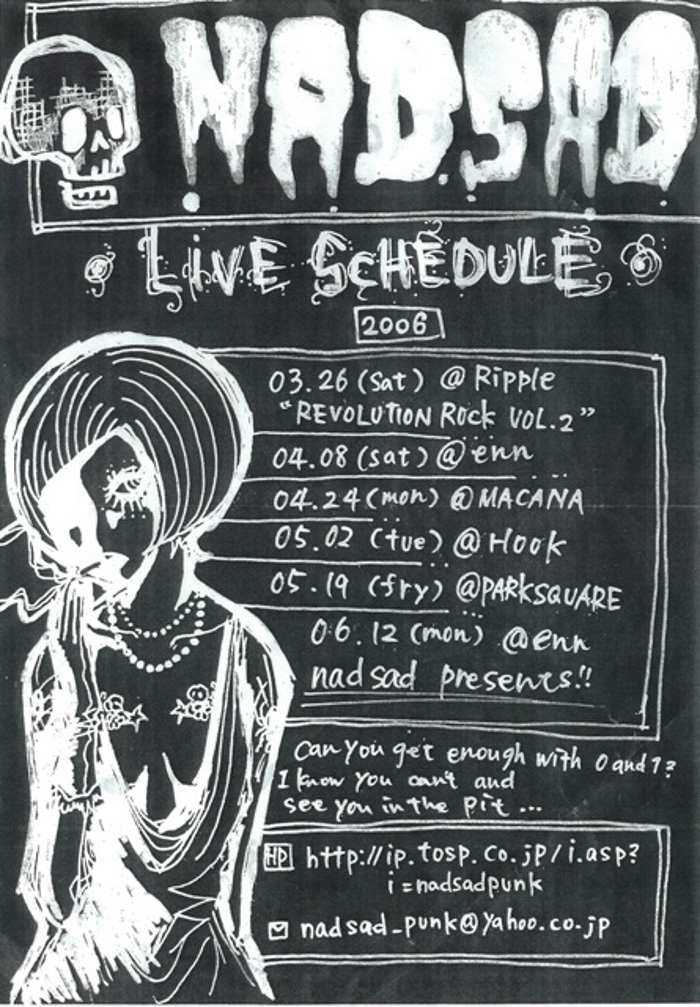 NADSAD
LIVE SCHEDULE
2006
03.26 (sat) @ Ripple
"REVOLUTION Rock VOL.2"
04.08 (sat) @ enn
04.24 (mon) @ MACANA
05.02 (tue) @ Hook
05.19 (fry) @PARKSQUARE
06.12 (mon) @enn
nadsad presents!!
Can you get enough with 0 and 1?
I know you can't and
see you in the pit ...
HP http://ip.tosp.co.jp/i.asp?
i=nadsadpunk
nadsad_punk@yahoo.co.jp